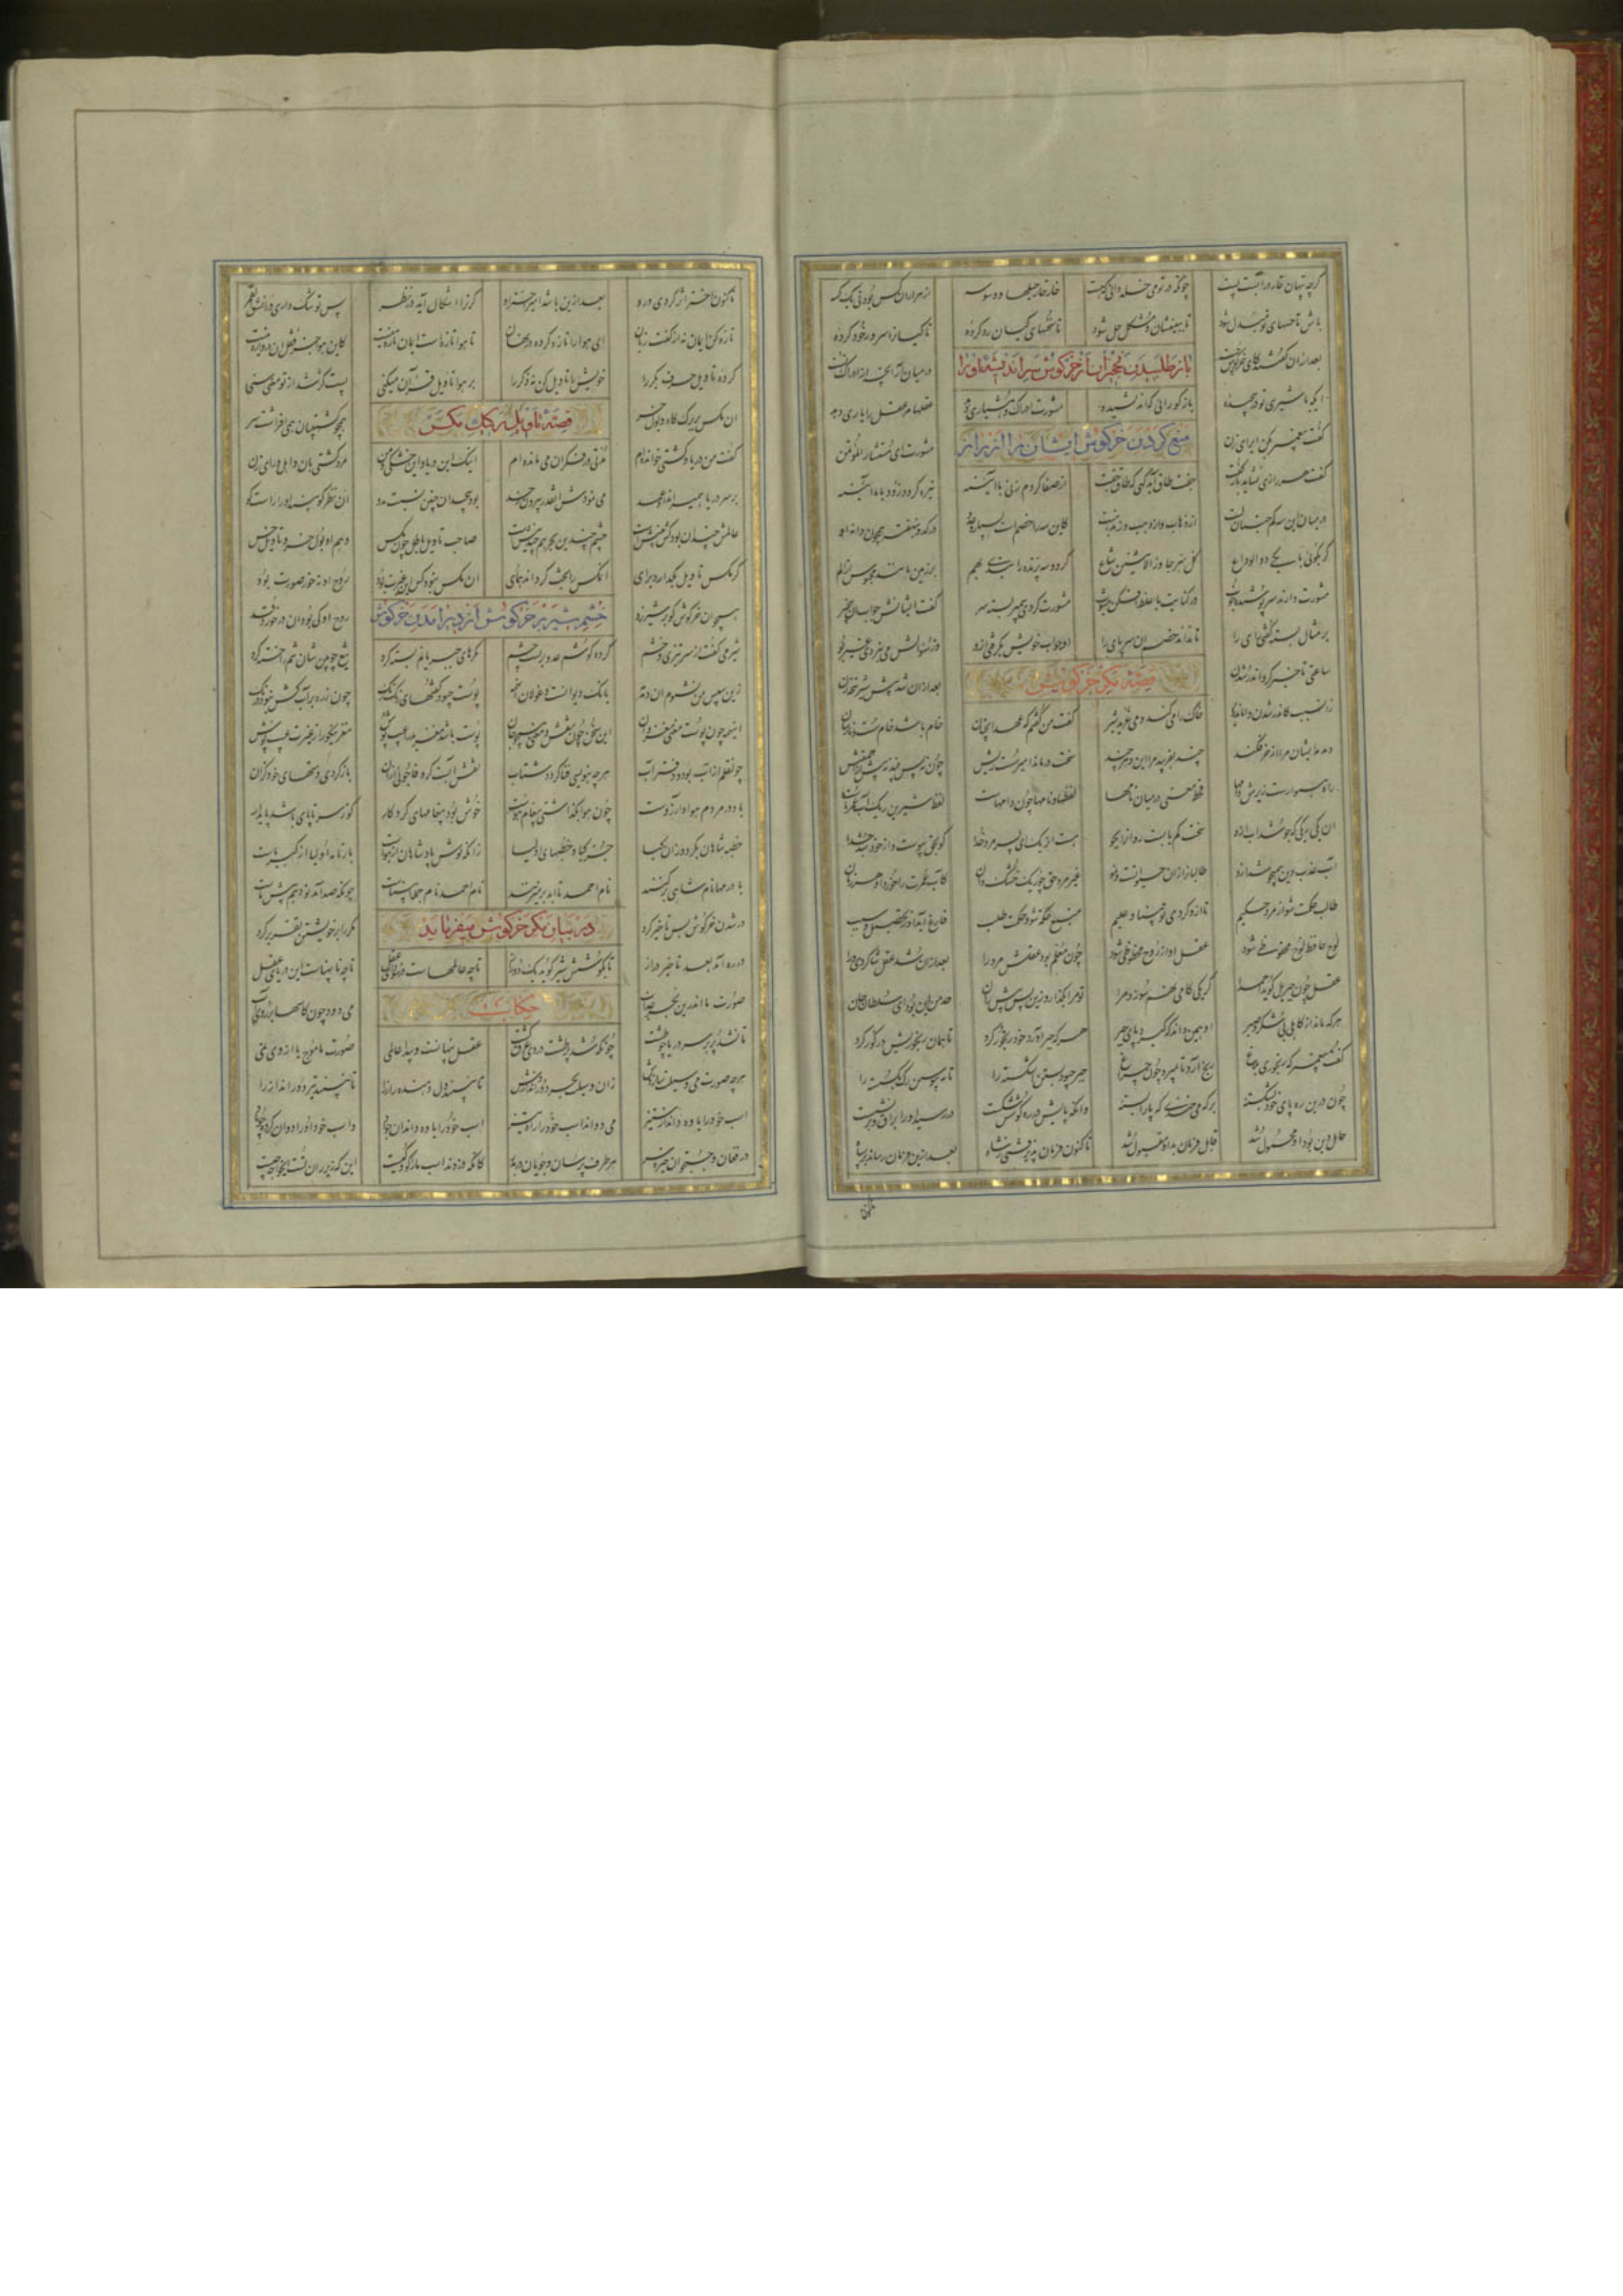 گرچه پنهان خار در آبست پست
چونکه در تو می خلد دانی که هست
خار خار حیلها و وسوسه
از هزاران کس بود نی یک کسه
باش تا حسهای تو مبدل شود
تا ببینیشان و مشکل حل شود
تا سخنهای کیان رد کرده
تا کیان را سرور خود کرده
بعد ازان گفتند کای خرگوش چست
در میان آر آنچه در ادراک تست
باز طلبیدن نخجیران از خرگوش سر اندیشه او را
ایکه با شیری تو در پیچیده
باز گو رائی که اندیشیده
مشورت ادراک و هشیاری دهد
عقلها مر عقل را یاری دهد
گفت پیغمبر بکن ای رای زن
مشورت المستشار مؤتمن
منع کردن خرگوش ایشان را از راز
گفت هر رازی نشاید باز گفت
جفت طاق آید گهی گه طاق جفت
از صفا گر دم زنی با آینه
تیره گردد زود با ما آینه
در بیان این سه کم جنبان لبت
از ذهاب و از ذهب وز مذهبت
کاین سه را خصمست بسیار و عدو
گر بگوئی با یکی دو الوداع
کل سر جاوز الاثنین شاع
گر دو سه پرنده را بندی بهم
بر زمین مانند محبوس از الم
مشورت دارند سر پوشیده خوب
در کنایت با غلط افکن مشوب
مشورت کردی پیمبر بسته سر
گفت ایشانش جواب و بی خبر
بر مثال بسته گفتی رای را
تا نداند خصم از سر پای را
او جواب خویش بگرفتی ازو
وز سؤالش می نبردی غیر بو
قصه مکر خرگوش
ساعتی تاخیر کرد اندر شدن
بعد ازان شد پیش شیر پنجه زن
زان سبب کاندر شدن او ماند دیر
خاک را می کند و می غرید شیر
گفت من گفتم که عهد آن خسان
خام باشد خام و سست و نارسان
دمدمه ایشان مرا از خر فکند
چند بفریبد مرا این دهر چند
سخت درماند امیر سست ریش
چون نه پس بیند نه پیش از احمقیش
راه هموارست زیرش دامها
قحط معنی در میان نامها
لفظها و نامها چون دامهاست
لفظ شیرین ریگ آب عمر ماست
آن یکی ریگی که جوشد آب ازو
سخت کم یابست رو آنرا بجو
هست آن ریگ ای پسر مرد خدا
کو بحق پیوست و از خود شد جدا
آب عذب دین همی جوشد ازو
طالبان را زان حیاتست و نمو
غیر مرد حق چو ریگ خشک دان
کآب عمرت را خورد او هر زمان
طالب حکمت شو از مرد حکیم
تا ازو گردی تو بینا و علیم
منبع حکمت شود حکمت طلب
فارغ آید او ز تحصیل و سبب
لوح حافظ لوح محفوظی شود
عقل او از روح محظوظی شود
چون معلم بود عقلش مرد را
بعد ازان شد عقل شاگردی ورا
عقل چون جبریل گوید احمدا
گر یکی گامی نهم سوزد مرا
تو مرا بگذار زین پس پیش ران
حد من این بود ای سلطان جان
هرکه ماند از کاهلی بی شکر و صبر
او همین داند که گیرد پای جبر
هرکه جبر آورد خود رنجور کرد
تا همان رنجوریش در گور کرد
گفت پیغمبر که رنجوری بلاغ
رنج آرد تا بمیرد چون چراغ
جبر چبود بستن اشکسته را
تا بپیوستن رگ بگسسته را
چون درین ره پای خود نشکسته
بر که می خندی که پا را بسته
وانکه پایش در ره کوشش شکست
در رسید او را براق و بر نشست
حامل دین بود او محمول شد
قابل فرمان بد او مقبول شد
تا کنون فرمان پذیرفتی ز شاه
بعد ازین فرمان رساند بر سپاه
تا کنون
تا کنون اختر اثر کردی درو
بعد ازین باشد امیر اختر او
گر ترا اشکال آید در نظر
پس تو شک داری در انشق القمر
تازه کن ایمان نه از گفت زبان
ای هوا را تازه کرده در نهان
تا هوا تازه است ایمان تازه نیست
کاین هوا جز قفل آن دروازه نیست
کرده تاویل حرف بکر را
خویش را تاویل کن نه ذکر را
بر هوا تاویل قرآن میکنی
پست و کژ شد از تو معنی سنی
قصه تاویل رکیک مگس
آن مگس بر برگ کاه و بول خر
همچو کشتیبان همی افراشت سر
گفت من دریا و کشتی خوانده ام
مدتی در فکر آن می مانده ام
اینک این دریا و این کشتی و من
مرد کشتی بان و اهل و رای زن
بر سر دریا همی راند او عمد
می نمودش اینقدر بیرون ز حد
بود بیحد آن چمین نسبت بدو
آن نظر کو بیند آنرا راست کو
عالمش چندان بود کش بینش است
چشم چندین بحر هم چندینش است
صاحب تاویل باطل چون مگس
وهم او بول خر و تاویل خس
گر مگس تاویل بگذارد برای
آن مگس را بخت گرداند همای
آن مگس نبود کش این عبرت بود
روح او نه در خور صورت بود
همچو آن خرگوش کو بر شیر زد
روح او کی بود اندر خورد قد
خشم شیر بر خرگوش از دیر آمدن خرگوش
شیر می گفت از سر تیزی و خشم
کز ره گوشم عدو بر بست چشم
مکرهای جبریانم بسته کرد
تیغ چوبین شان تنم را خسته کرد
زین سپس من نشنوم آن دمدمه
بانگ دیوانست و غولان آن همه
پوست چبود گفتهای رنگ رنگ
چون زره بر آب کش نبود درنگ
این سخن چون پوست معنی مغز دان
این سخن چون نقش و معنی همچو جان
پوست باشد مغز بد را عیب پوش
مغز نیکو را ز غیرت غیب پوش
چون قلم از باد بود و دفتر آب
هرچه بنویسی فنا گردد شتاب
نقش آبست گر وفا جوئی ازان
باز گردی دستهای خود گزان
باد در مردم هوا و آرزوست
چون هوا بگذاشتی پیغام هوست
خوش بود پیغامهای کردگار
کو ز سر تا پای باشد پایدار
خطبه شاهان بگردد وان کیا
جز کیا و خطبهای انبیا
زانکه بوش پادشاهان از هواست
بارنامه انبیا از کبریاست
از درمها نام شاهی بر کنند
نام احمد تا ابد بر میزنند
نام احمد نام جمله انبیاست
چونکه صد آمد نود هم پیش ماست
در شدن خرگوش بس تاخیر کرد
مکر را بر خویشتن تقریر کرد
در بیان مکر خرگوش میفرماید
در ره آمد بعد تاخیر دراز
تا بگوش شیر گوید یک دو راز
تا چه عالمهاست در سودای عقل
تا چه با پهناست این دریای عقل
حکایت
صورت ما اندرین بحر عذاب
می دود چون کاسها بر روی آب
تا نشد پر بر سر دریا چو طشت
چونکه شد پر طشت در وی غرق گشت
عقل پنهانست و پیدا عالمی
صورت ما موج یا از وی نمی
هرچه صورت می وسیلت سازدش
زان وسیلت بحر دور اندازدش
تا نبیند دل دهنده راز را
تا نبیند تیر دور انداز را
اسب خود را یاوه داند وز ستیز
می دواند اسب خود در راه تیز
اسب خود را یاوه داند آن جواد
در فغان و جستجو آن خیره سر
هر طرف پرسان و جویان در بدر
کانکه دزدید اسب ما را کو و کیست
این که زیر ران تست ای خواجه چیست